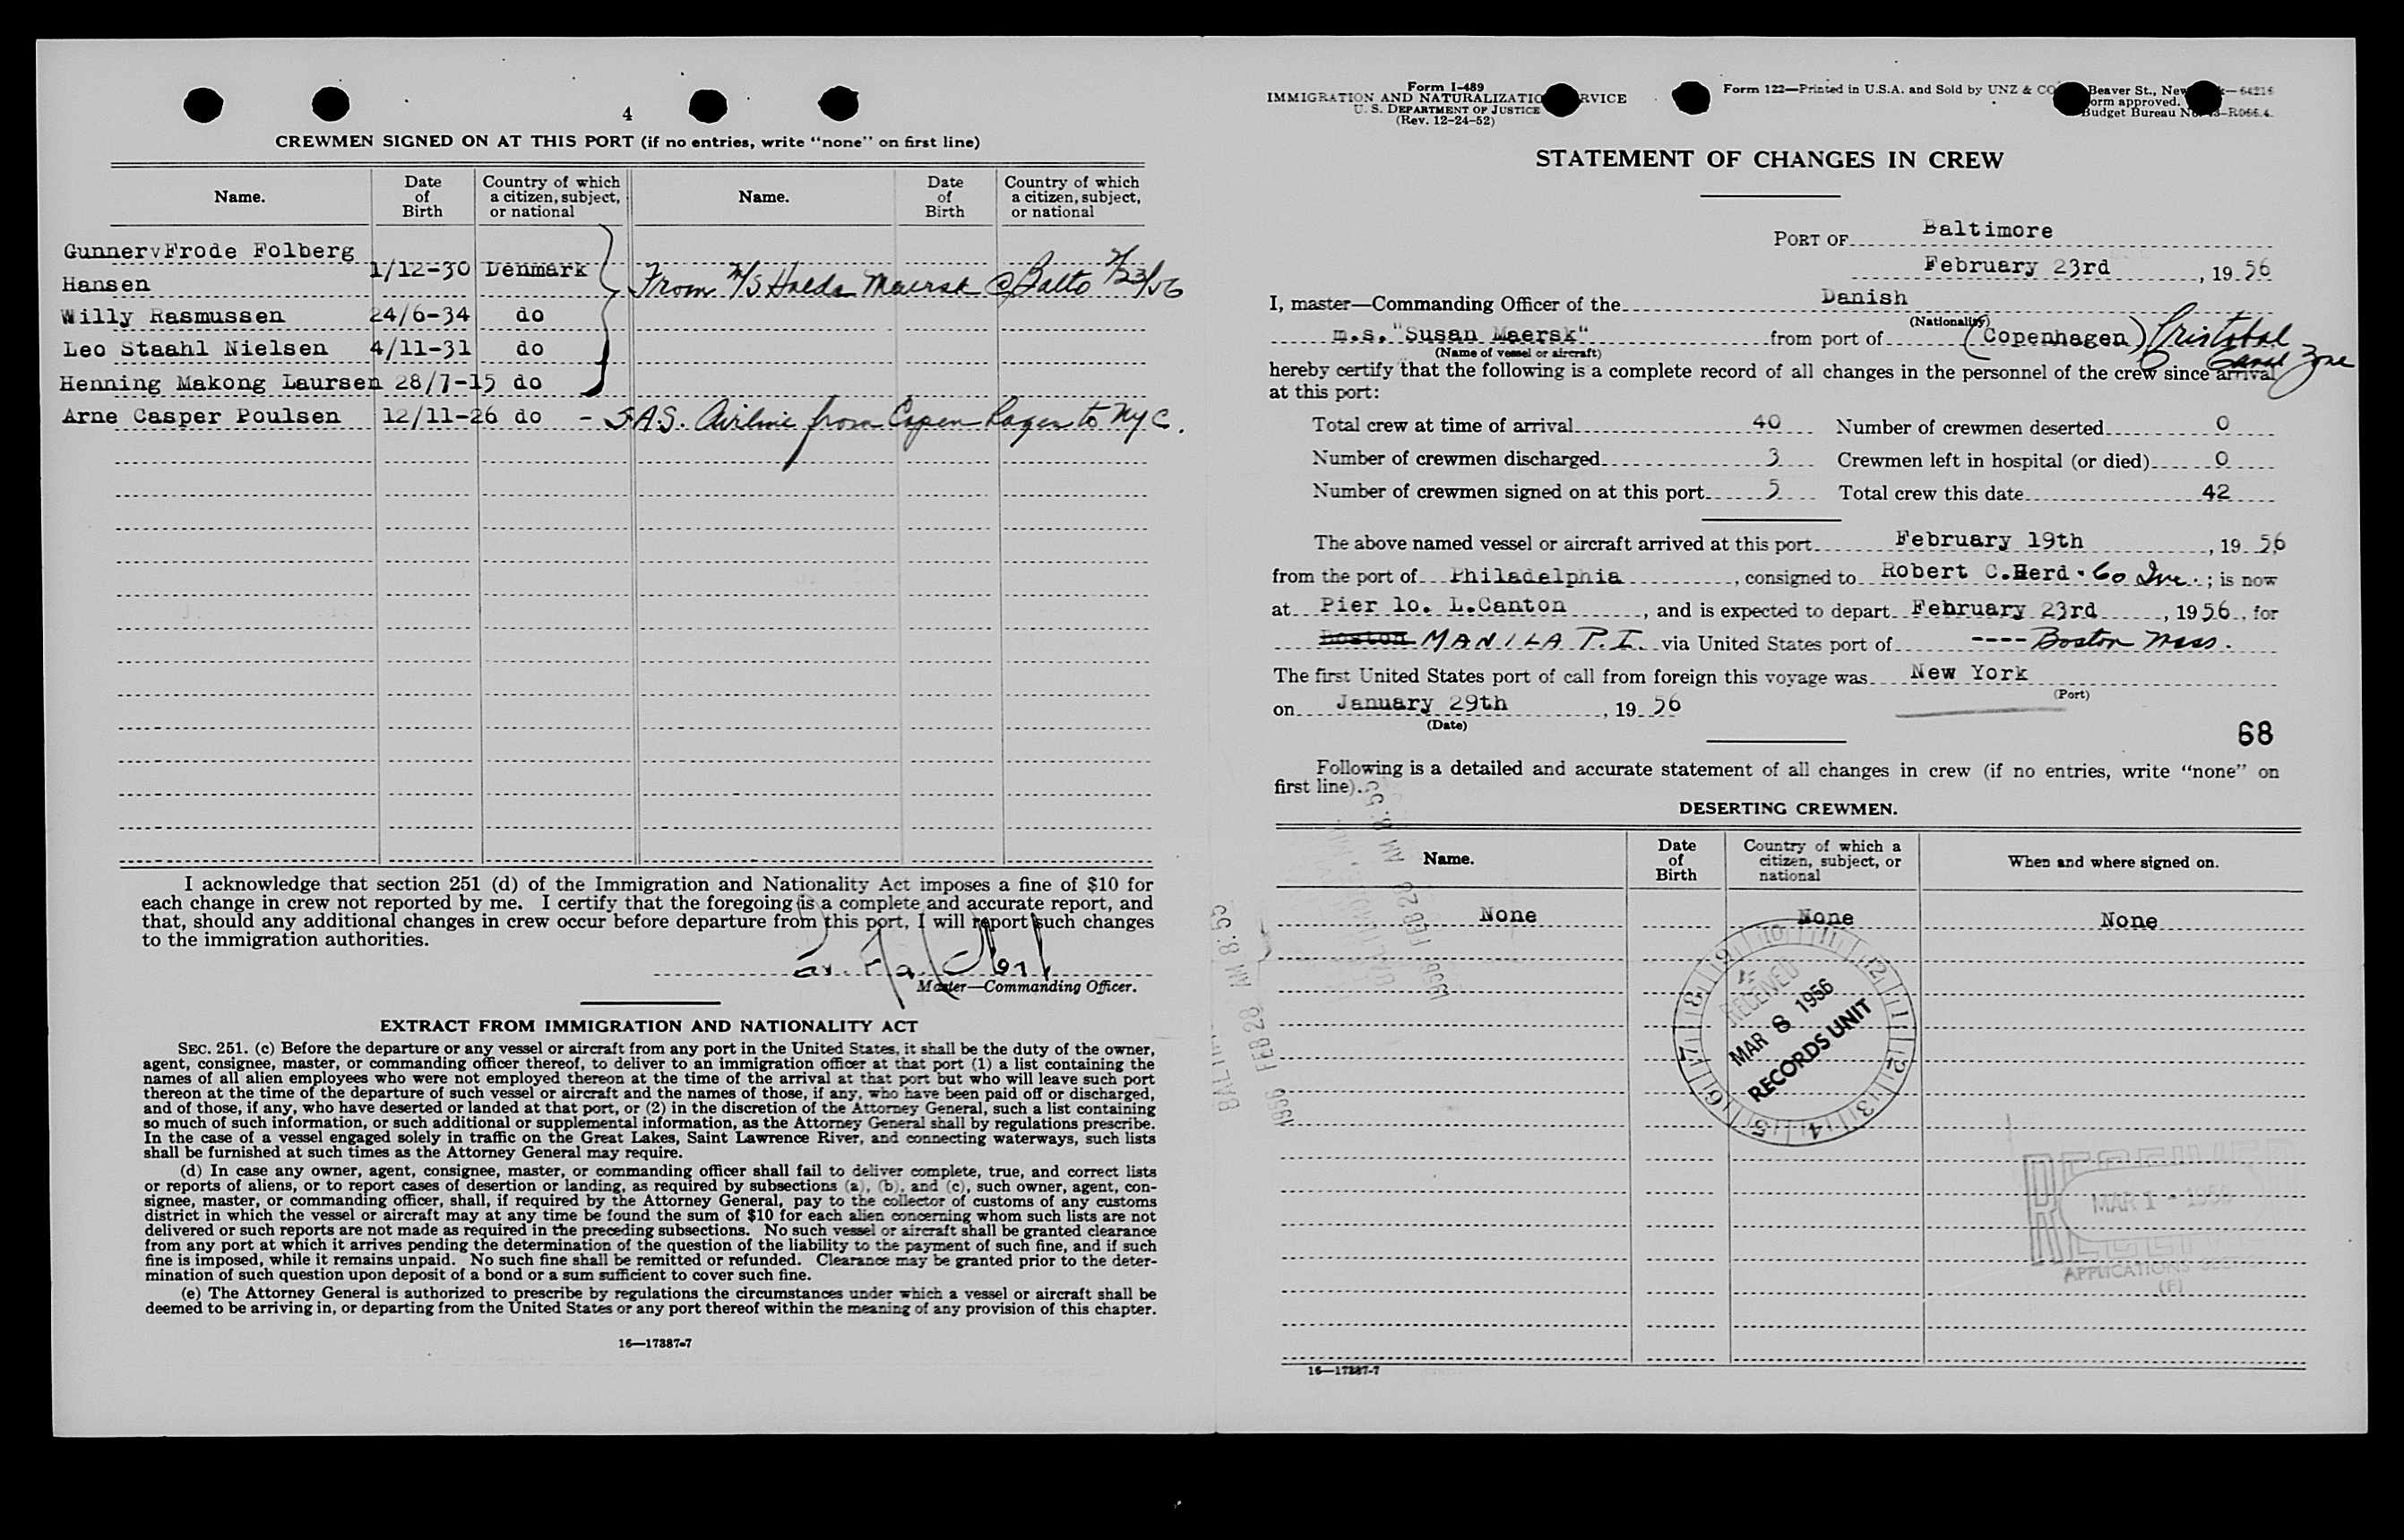 4
CREWMEN SIGNED ON AT THIS PORT (if no entries, write "none" on first line)
Name. Date of Birth Country of which a citizen, subject, or national Name. Date of Birth Country of which a citizen, subject, or national
Gunner Frode Folberg
Hansen 1/12-30 Denmark From M/S Halds Maersk @ Balto 2/23/56
Willy Rasmussen 24/6-34 do
Leo Staahl Nielsen 4/11-31 do
Henning Makong Laursen 28/7-15 do
Arne Casper Poulsen 12/11-26 do - S.A.S. Airline from Copenhagen to NYC.
I acknowledge that section 251 (d) of the Immigration and Nationality Act imposes a fine of $10 for
each change in crew not reported by me. I certify that the foregoing is a complete and accurate report, and
that, should any additional changes in crew occur before departure from this port, I will report such changes
to the immigration authorities.
Master—Commanding Officer.
EXTRACT FROM IMMIGRATION AND NATIONALITY ACT
SEC. 251. (c) Before the departure or any vessel or aircraft from any port in the United States, it shall be the duty of the owner,
agent, consignee, master, or commanding officer thereof, to deliver to an immigration officer at that port (1) a list containing the
names of all alien employees who were not employed thereon at the time of the arrival at that port but who will leave such port
thereon at the time of the departure of such vessel or aircraft and the names of those, if any, who have been paid off or discharged,
and of those, if any, who have deserted or landed at that port, or (2) in the discretion of the Attorney General, such a list containing
so much of such information, or such additional or supplemental information, as the Attorney General shall by regulations prescribe.
In the case of a vessel engaged solely in traffic on the Great Lakes, Saint Lawrence River, and connecting waterways, such lists
shall be furnished at such times as the Attorney General may require.
(d) In case any owner, agent, consignee, master, or commanding officer shall fail to deliver complete, true, and correct lists
or reports of aliens, or to report cases of desertion or landing, as required by subsections (a), (b), and (c), such owner, agent, con-
signee, master, or commanding officer, shall, if required by the Attorney General, pay to the collector of customs of any customs
district in which the vessel or aircraft may at any time be found the sum of $10 for each alien concerning whom such lists are not
delivered or such reports are not made as required in the preceding subsections. No such vessel or aircraft shall be granted clearance
from any port at which it arrives pending the determination of the question of the liability to the payment of such fine, and if such
fine is imposed, while it remains unpaid. No such fine shall be remitted or refunded. Clearance may be granted prior to the deter-
mination of such question upon deposit of a bond or a sum sufficient to cover such fine.
(e) The Attorney General is authorized to prescribe by regulations the circumstances under which a vessel or aircraft shall be
deemed to be arriving in, or departing from the United States or any port thereof within the meaning of any provision of this chapter.
16—17387-7
Form I-489
IMMIGRATION AND NATURALIZATIO RVICE
U. S. DEPARTMENT OF JUSTICE
(Rev. 12-24-52)
Form 122—Printed in U.S.A. and Sold by UNZ & CO Beaver St., New —64216
orm approved.
Budget Bureau No. 43-R066.4.
STATEMENT OF CHANGES IN CREW
PORT OF Baltimore
February 23rd, 19 56
I, master—Commanding Officer of the Danish
(Nationality)
m.s. "Susan Maersk" from port of (Copenhagen) Cristobal Canal Zone
(Name of vessel or aircraft)
hereby certify that the following is a complete record of all changes in the personnel of the crew since arrival
at this port:
Total crew at time of arrival 40 Number of crewmen deserted 0
Number of crewmen discharged 3 Crewmen left in hospital (or died) 0
Number of crewmen signed on at this port 5 Total crew this date 42
The above named vessel or aircraft arrived at this port February 19th, 19 56
from the port of Philadelphia, consigned to Robert C.Herd & Co Inc.; is now
at Pier 10. L.Canton, and is expected to depart February 23rd, 19 56, for
Boston MANILA P.I. via United States port of ---- Boston Mass.
The first United States port of call from foreign this voyage was New York
(Port)
on January 29th, 19 56
(Date)
68
Following is a detailed and accurate statement of all changes in crew (if no entries, write "none" on
first line).
DESERTING CREWMEN.
Name. Date of Birth Country of which a citizen, subject, or national When and where signed on.
None None None
1956 FEB 28 AM 8:55
BALTIM
1956 FEB 28 AM 8:55
RECEIVED
MAR 8 1956
RECORDS UNIT
10 11 12 1 2 3 4 5 6 7 8 9
RECEIVED
MAR 1 - 1956
APPLICATIONS
(F)
16—17387-7